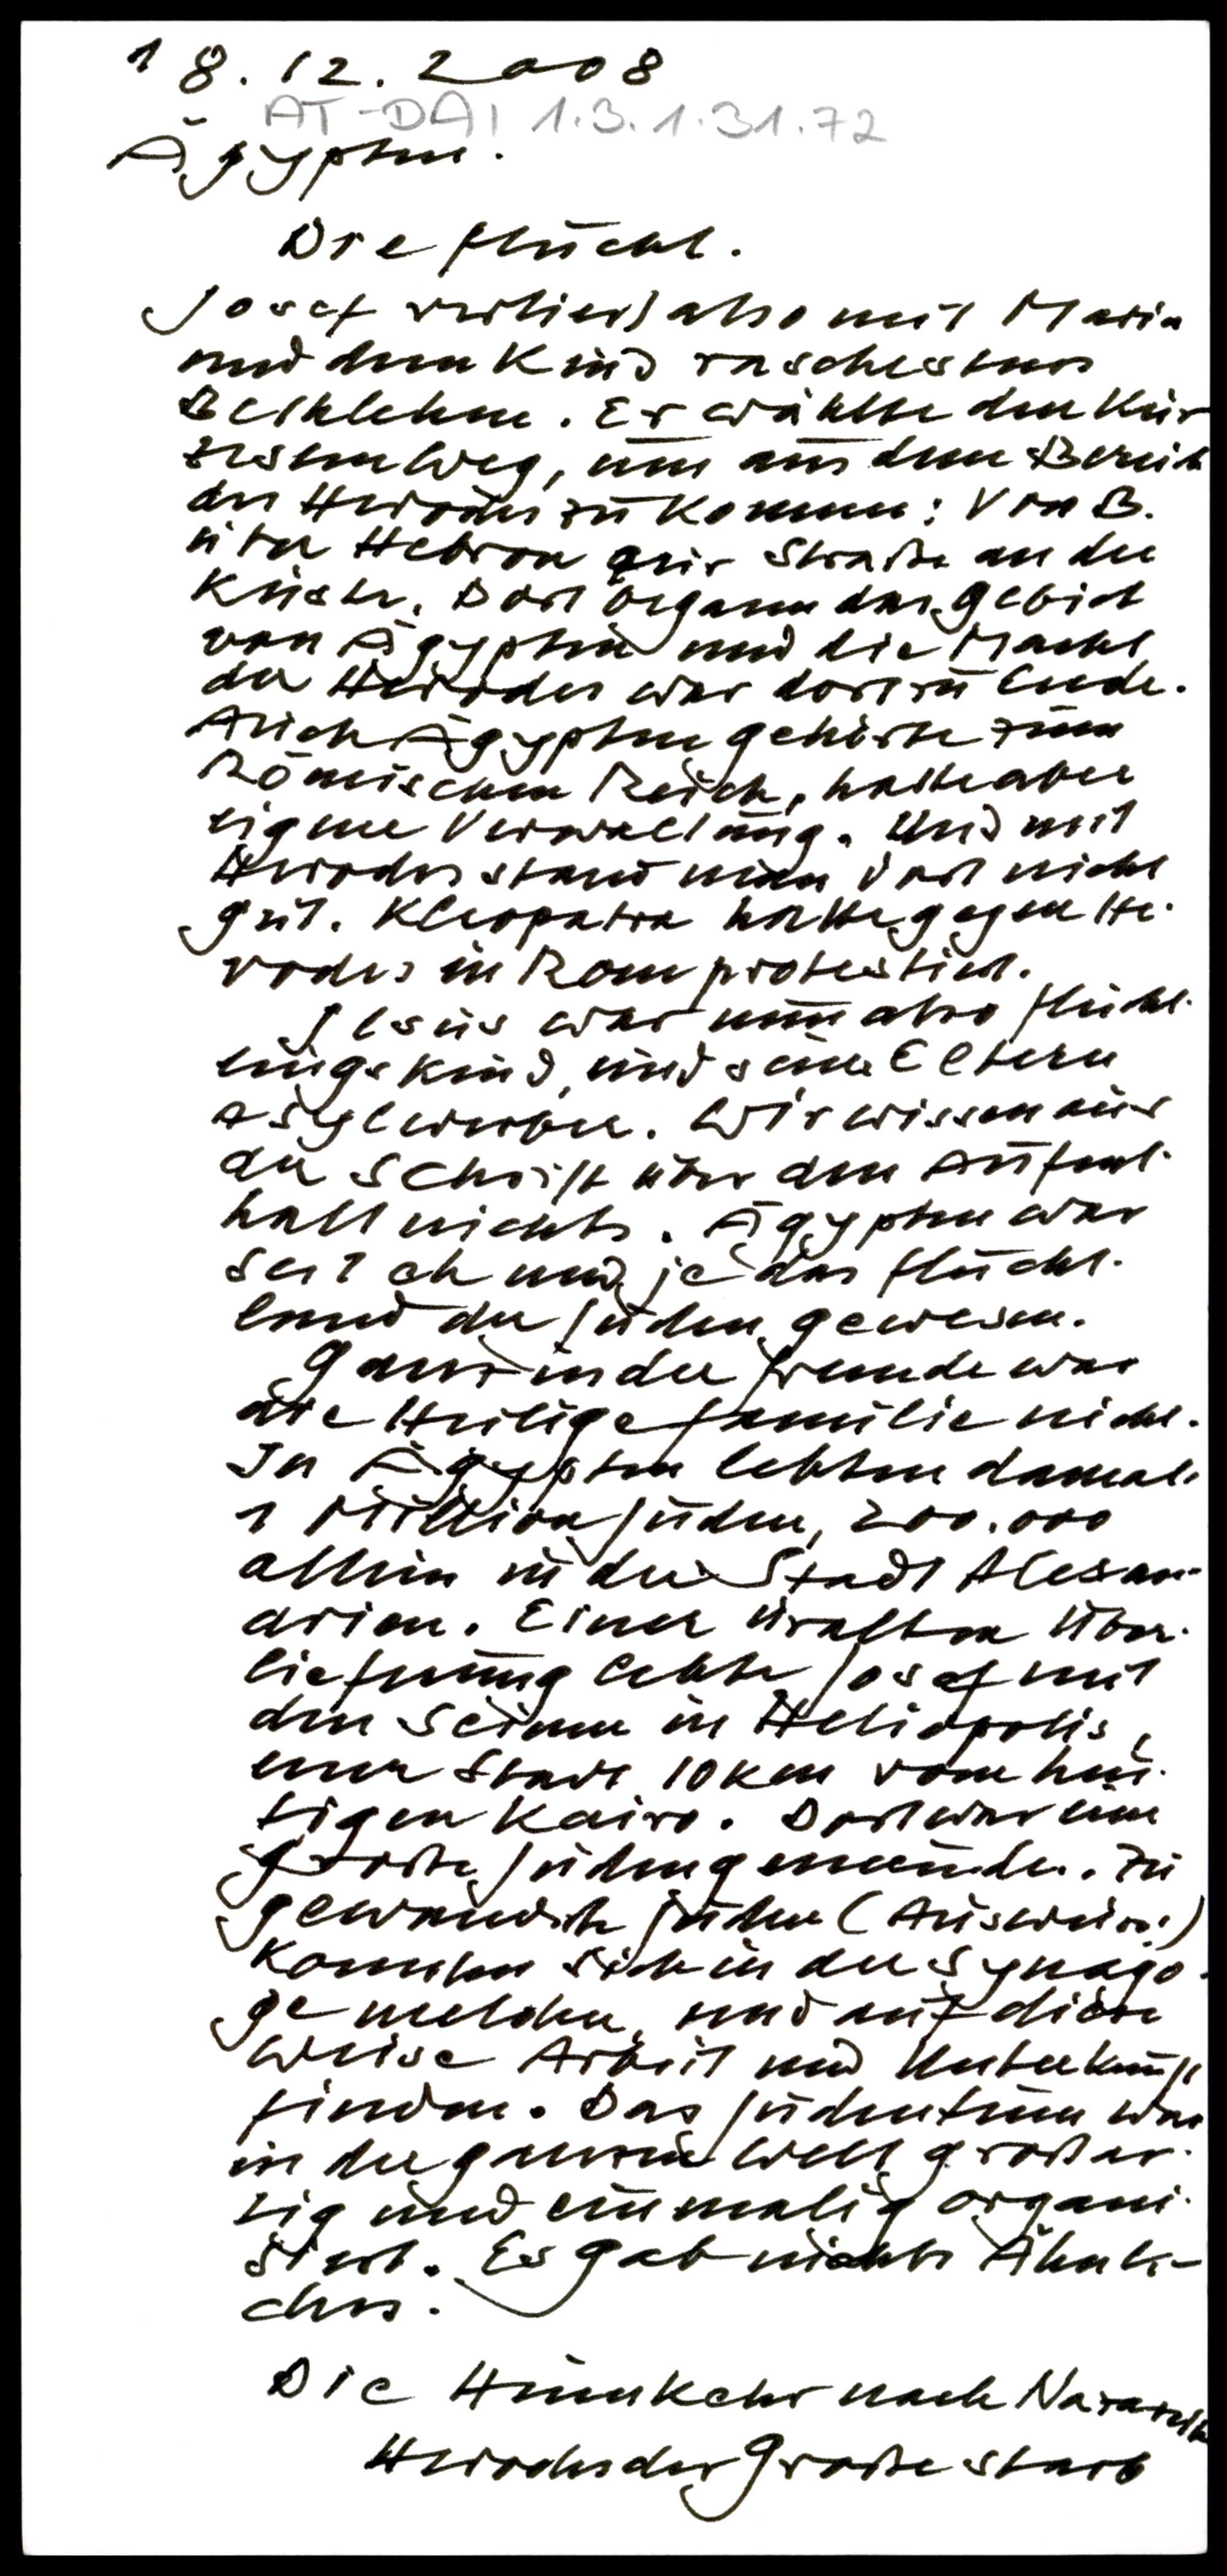 18.12.2008
AT-DAI 1.3.1.31.72
Ägypten.
Die Flucht.
Josef verließ also mit Maria
und dem Kind raschestens
Bethlehem. Er wählte den kür
zesten Weg, um aus dem Bereich
des Herodes zu kommen: Von B.
über Hebron zur Straße an die
Küste. Dort begann das Gebiet
von Ägypten und die Macht
des Herodes war dort zu Ende.
Auch Ägypten gehörte zum
Römischen Reich, hatte aber
eigene Verwaltung. Und mit
Herodes stand man dort nicht
gut. Kleopatra hatte gegen He-
rodes in Rom protestiert.
Jesus war nun also Flücht-
lingskind, und seine Eltern
Asylwerber. Wir wissen aus
der Schrift über den Aufent-
halt nichts. Ägypten war
seit eh und je das Flucht-
land der Juden gewesen.
Ganz in der Fremde war
die Heilige Familie nicht.
In Ägypten lebten damals
1 Million Juden, 200.000
allein in der Stadt Alexan-
drien. Einer uralten Über-
lieferung lebte Josef mit
den Seinen in Heliopolis,
einer Stadt 10 km vom heu-
tigen Kairo. Dort war eine
große Judengemeinde. Zu
gewanderte Juden (Ausweise!)
konnten sich in der Synago-
ge melden, und auf diese
Weise Arbeit und Unterkunft
finden. Das Judentum war
in der ganzen Welt großar-
tig und einmalig organi-
siert. Es gab nichts Ähnli-
ches.
Die Heimkehr nach Nazareth
Herodes der Große starb